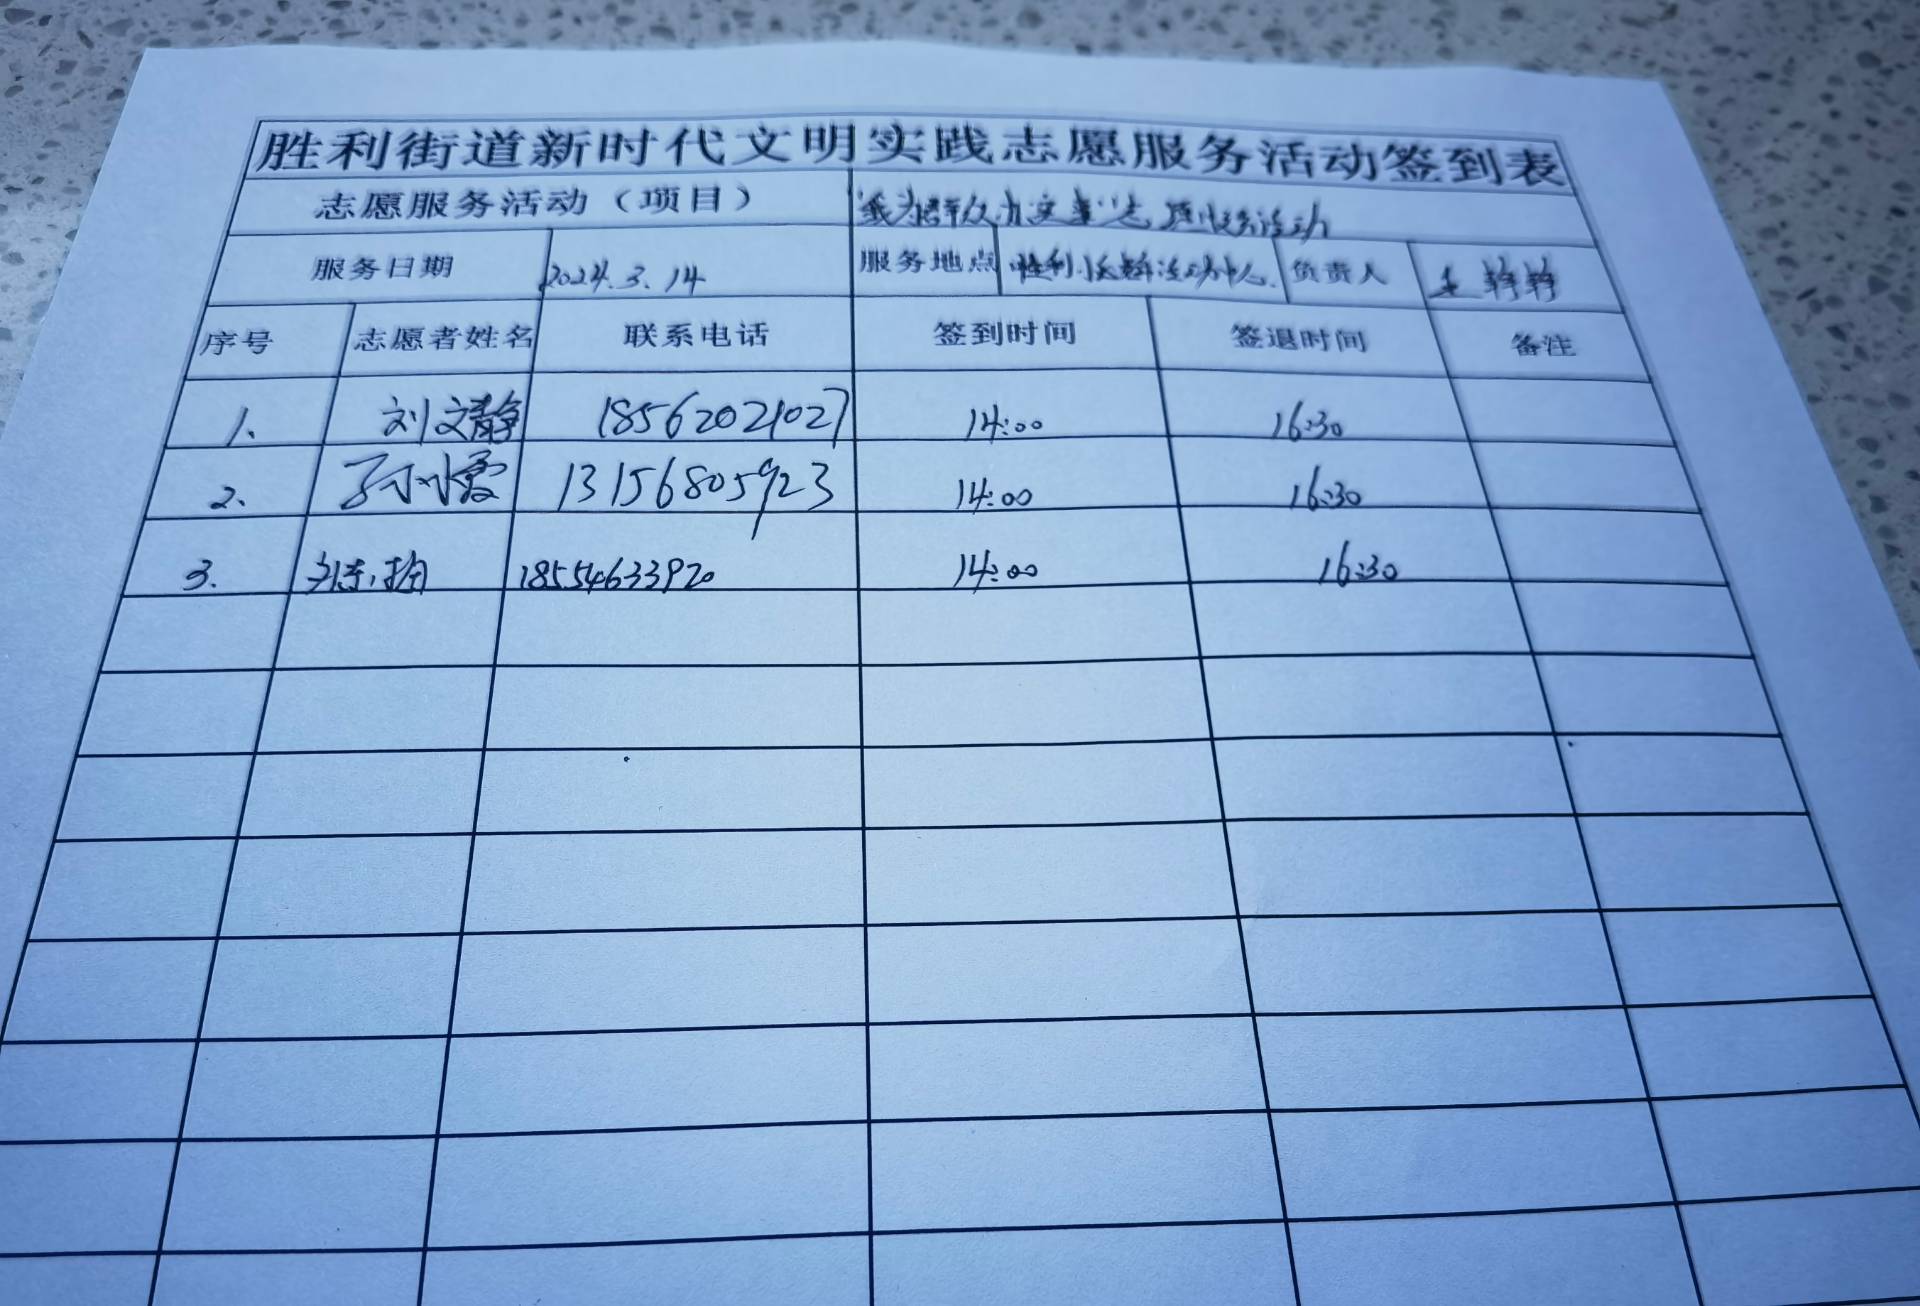 胜利街道新时代文明实践志愿服务活动签到表
志愿服务活动（项目） "我为群众办实事"志愿服务活动
服务日期 2024.3.14 服务地点 胜利党群活动中心 负责人 王
序号 志愿者姓名 联系电话 签到时间 签退时间 备注
1. 刘文静 18562021027 14:00 16:30
2. 孙霞 13156805923 14:00 16:30
3. 18554633920 14:00 16:30